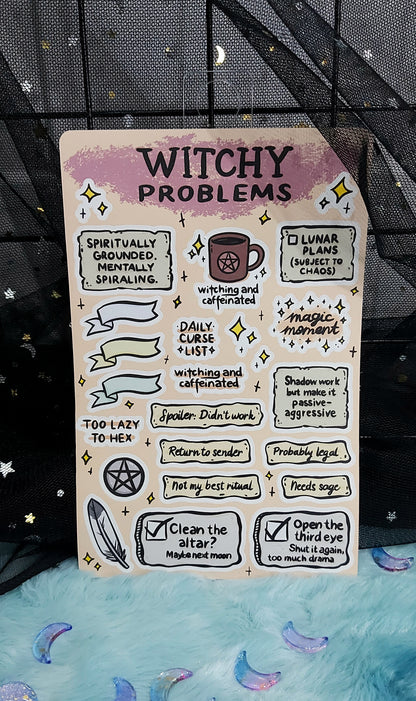 WITCHY
PROBLEMS
SPIRITUALLY
GROUNDED.
MENTALLY
SPIRALING.
witching and
caffeinated
LUNAR
PLANS
(SUBJECT TO
CHAOS)
DAILY
CURSE
LIST
magic
moment
witching and
caffeinated
Shadow work
but make it
passive-
aggressive
Spoiler: Didn't work
TOO LAZY
TO HEX
Return to sender
Probably legal
Not my best ritual
Needs sage
Clean the
altar?
Maybe next moon
Open the
third eye
Shut it again,
too much drama